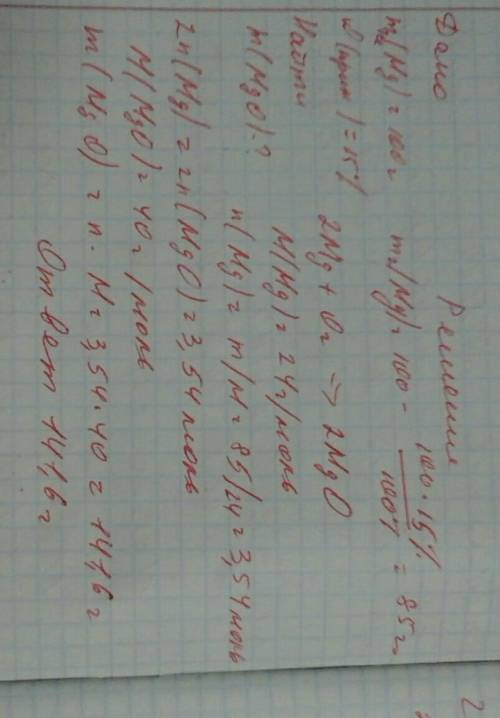 Дано
Решение
m(Mg) = 100г
ω(прим) = 15%
Найти
m(MgO) - ?
m(Mg) = 100 - 100 · 15% / 100% = 85г
2Mg + O₂ => 2MgO
M(Mg) = 24г/моль
n(Mg) = m/M = 85/24 = 3,54 моль
2n(Mg) = 2n(MgO) = 3,54 моль
M(MgO) = 40г/моль
m(MgO) = n · M = 3,54 · 40 = 141,6г
Ответ 141,6г
2